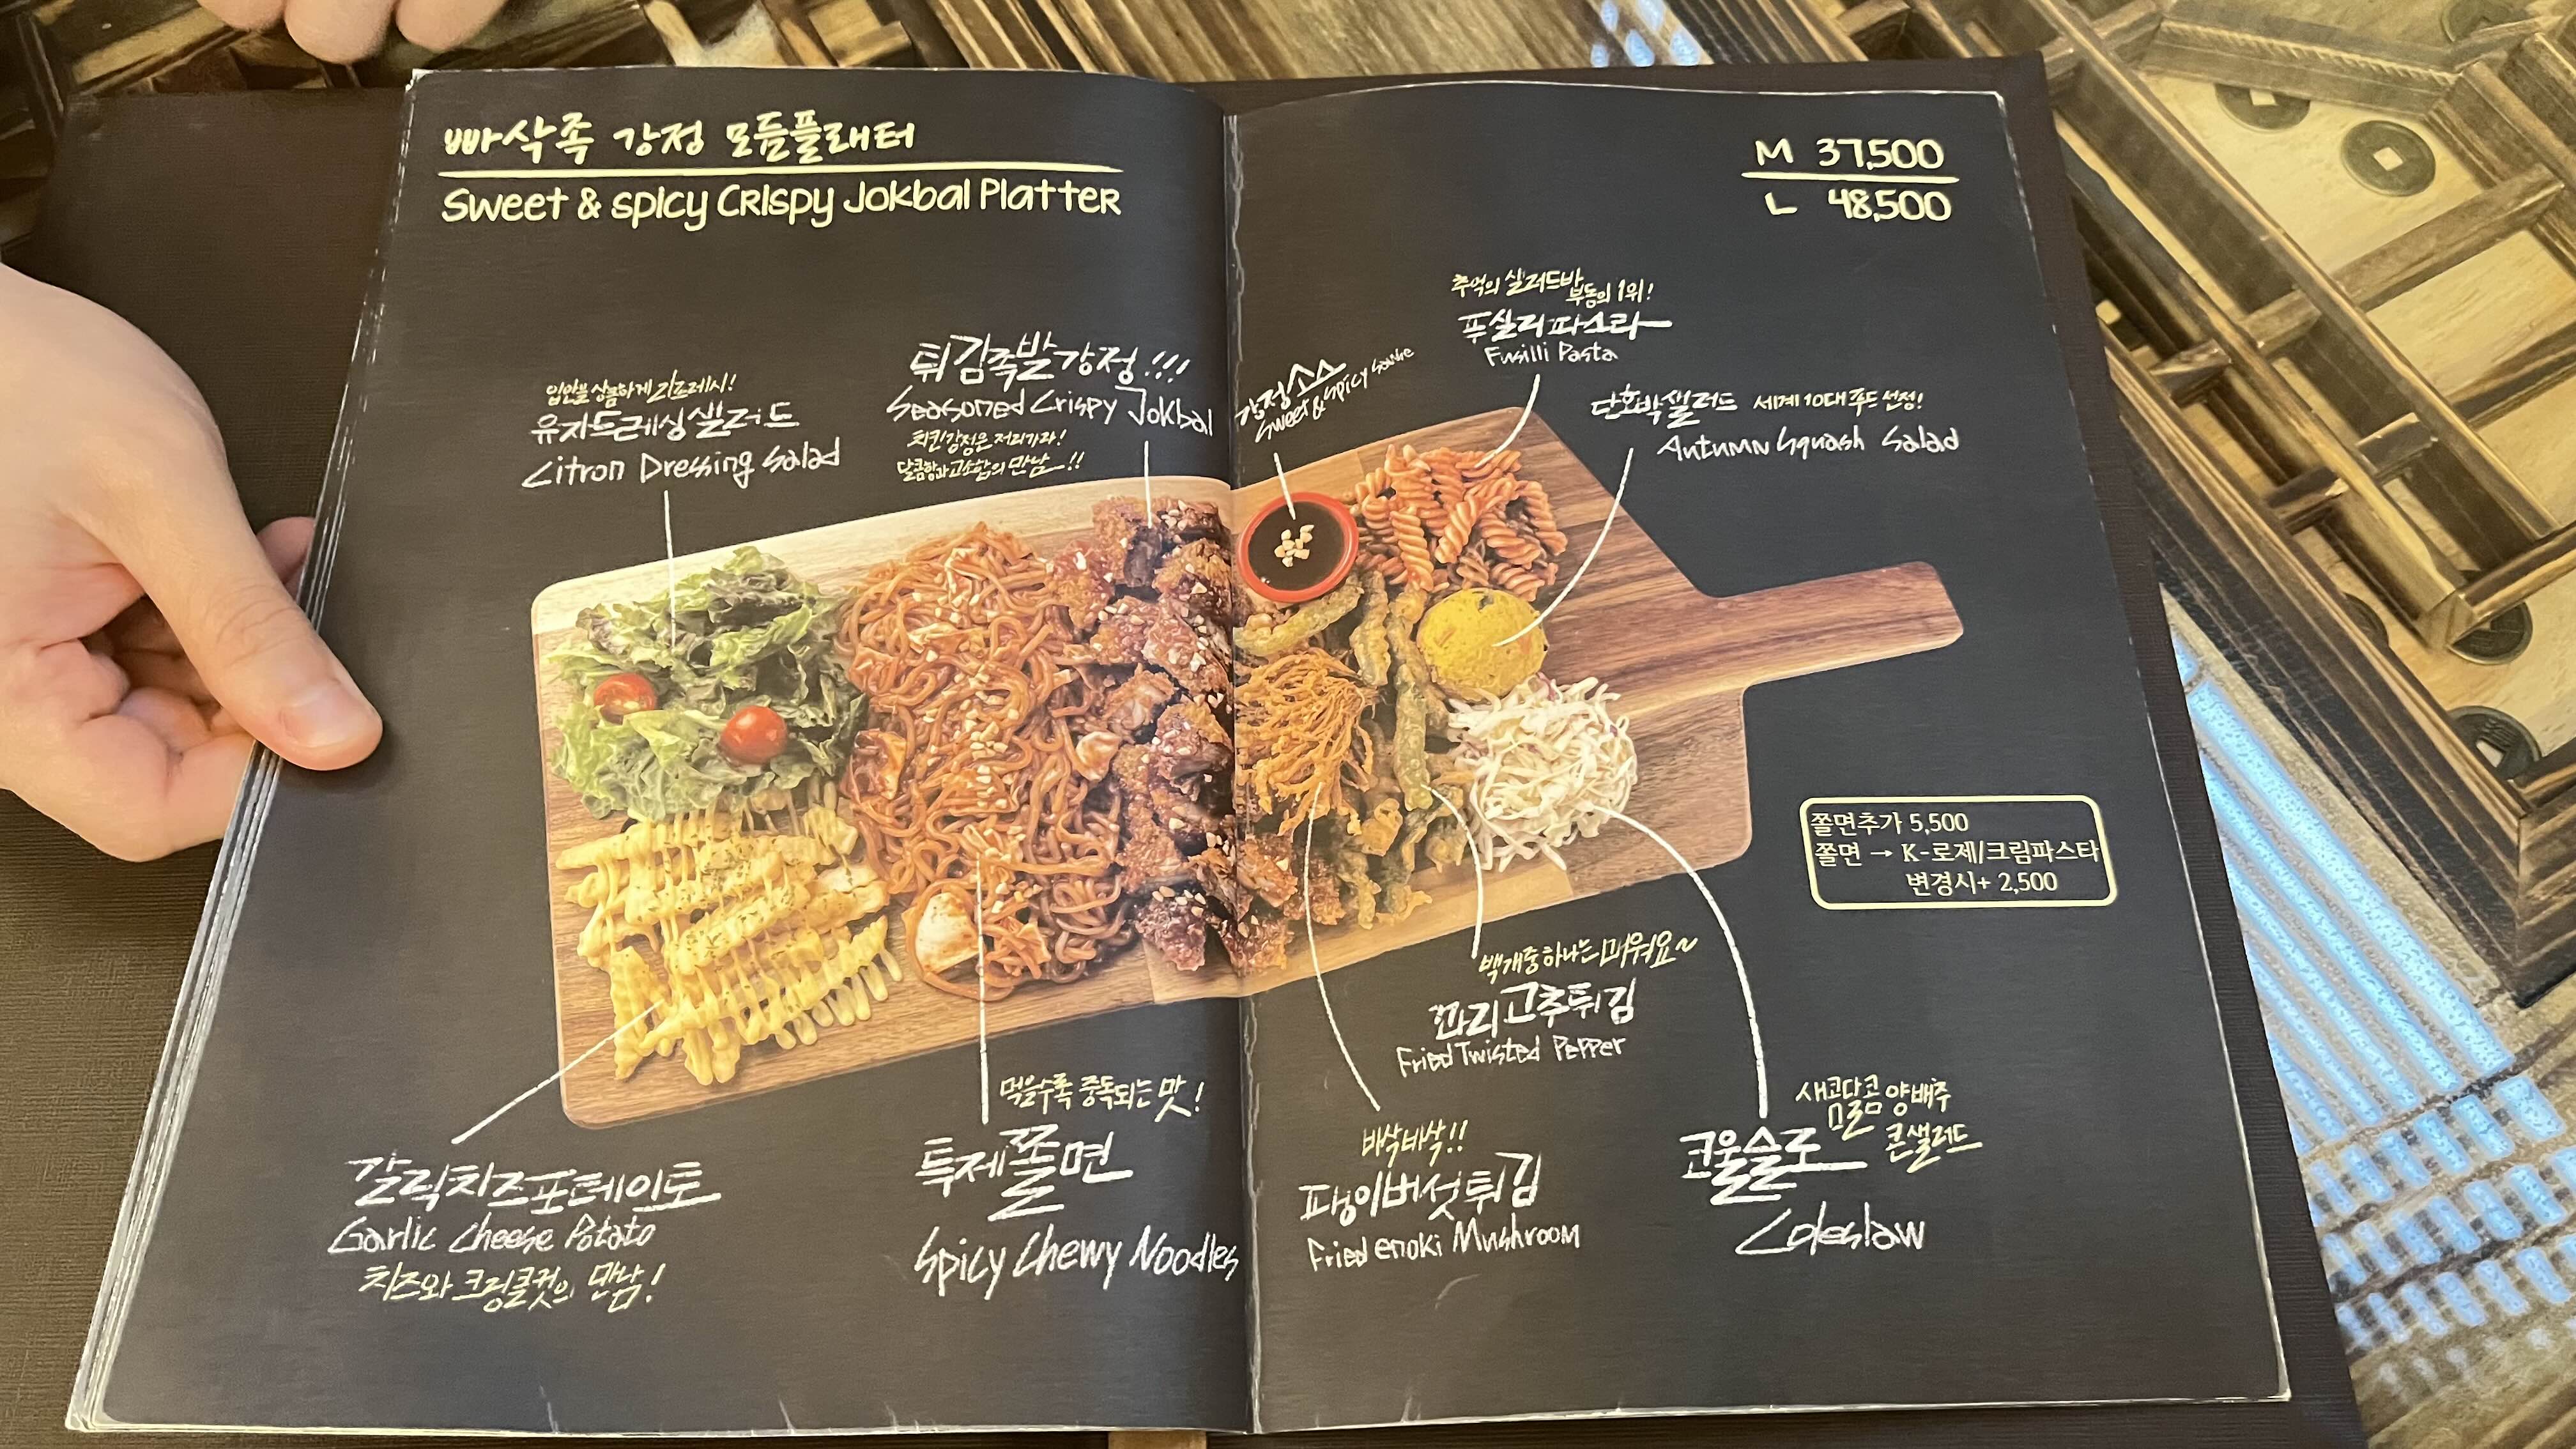 빠삭족 강정 모듬플래터
Sweet & Spicy Crispy Jokbal Platter
M 37,500
L 48,500
입안을 상큼하게 리프레시!
유자드레싱샐러드
Citron Dressing Salad
튀김족발강정!!!
Seasoned Crispy Jokbal
치킨강정은 저리가라!
달콤함과 고소함의 만남_!!
강정소스
Sweet & Spicy Sauce
추억의 샐러드바
부동의 1위!
푸실리파스타
Fusilli Pasta
단호박샐러드 세계 10대 푸드 선정!
Autumn Squash Salad
쫄면추가 5,500
쫄면 → K-로제/크림파스타
변경시+ 2,500
갈릭치즈포테이토
Garlic Cheese Potato
치즈와 크링클컷의 만남!
먹을수록 중독되는 맛!
특제쫄면
Spicy Chewy Noodles
백개중하나는매워요~
꽈리고추튀김
Fried Twisted Pepper
바삭바삭!!
팽이버섯튀김
Fried enoki Mushroom
새콤달콤 양배추
콘샐러드
코울슬로
Coleslaw